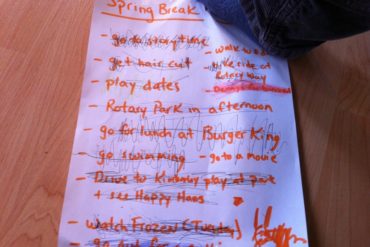 Spring Break
- go to storytime
- get hair cut
- play dates
- walk to
- bike ride at
Rotary Way
- Rotary Park in afternoon
- go for lunch at Burger King
- go swimming
- go to a movie
- Drive to Kimberley play at park
+ see Happy Hans
- Watch Frozen (Tues)
- go out for